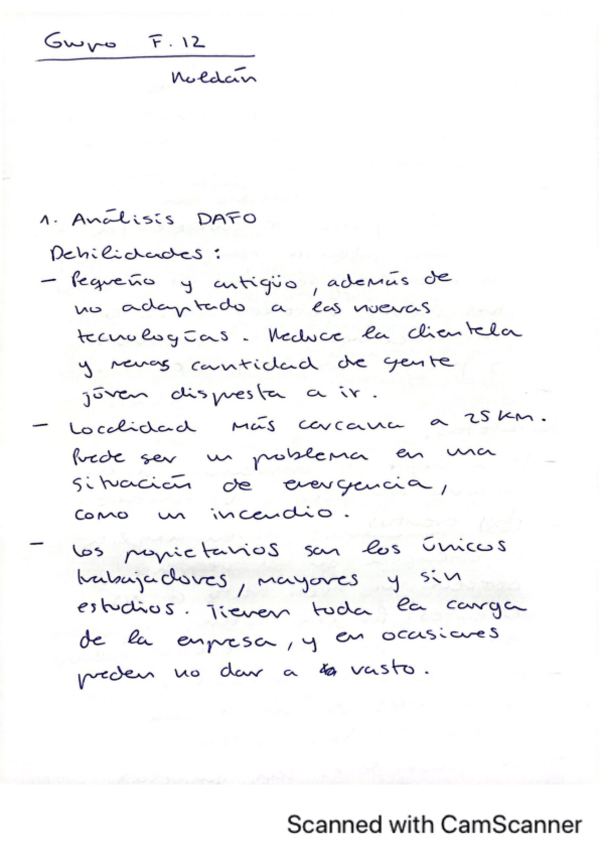 Grupo F.12
Roldán
1. Análisis DAFO
Debilidades:
- Pequeño y antigüo, además de
no adaptado a las nuevas
tecnologías. Reduce la clientela
y menos cantidad de gente
jóven dispesta a ir.
- Localidad más carcana a 25 KM.
Puede ser un problema en una
situación de emergencia,
como un incendio.
- Los propietarios son los únicos
trabajadores, mayores y sin
estudios. Tienen toda la carga
de la empresa, y en ocasiones
pueden no dar a vasto.
Scanned with CamScanner